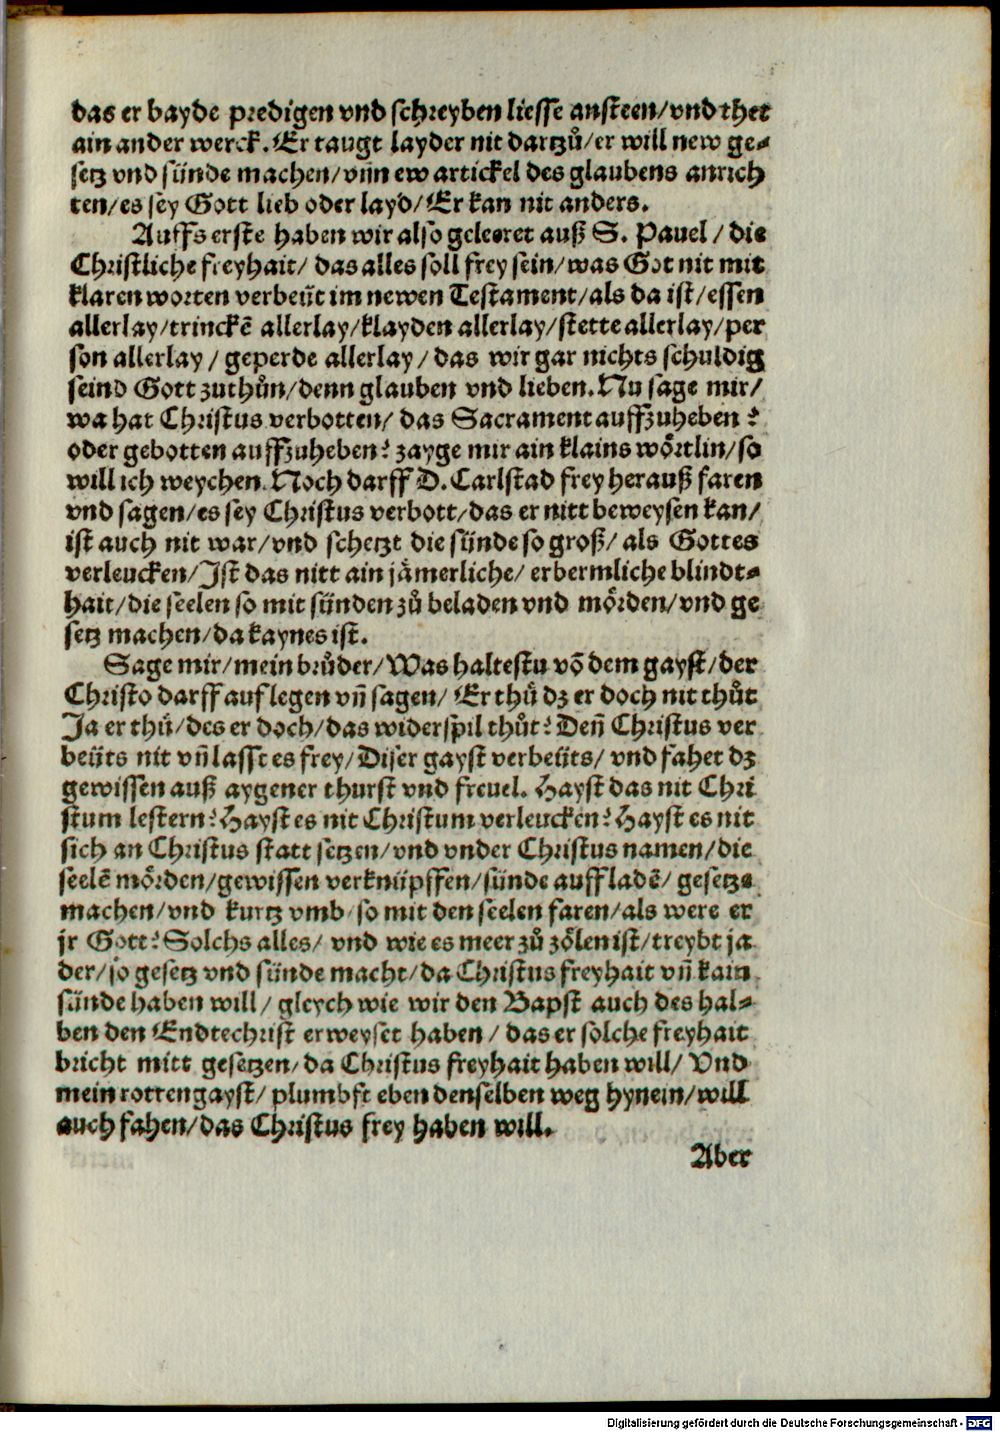 das er bayde predigen vnd schreyben liesse ansteen/vnd thet
ain ander werck. Er taugt layder nit dartzů/er will new ge⸗
setz vnd sünde machen/vñ new artickel des glaubens anrich
ten/es sey Gott lieb oder layd/Er kan nit anders.
Auffs erste haben wir also geleeret auß S. Pauel/die
Christliche freyhait/das alles soll frey sein/was Got nit mit
klaren worten verbeüt im newen Testament/als da ist/essen
allerlay/trinckē allerlay/klayden allerlay/stette allerlay/per
son allerlay/geperde allerlay/das wir gar nichts schuldig
seind Gott zuthůn/denn glauben vnd lieben. Nu sage mir/
wa hat Christus verbotten/das Sacrament auffzuheben?
oder gebotten auffzuheben? zayge mir ain klains wörtlin/so
will ich weychen. Noch darff D. Carlstad frey herauß faren
vnd sagen/es sey Christus verbott/das er nitt beweysen kan/
ist auch nit war/vnd schetzt die sünde so groß/als Gottes
verleucken/Ist das nitt ain jämerliche/erbermliche blindt⸗
hait/die seelen so mit sünden zů beladen vnd mörden/vnd ge
setz machen/da kaynes ist.
Sage mir/mein brůder/Was haltestu võ dem gayst/der
Christo darff auflegen vñ sagen/Er thů dz er doch nit thůt
Ja er thů/des er doch/das widerspil thůt? Deñ Christus ver
beüts nit vñ lasst es frey/Diser gayst verbeüts/vnd fahet dz
gewissen auß aygener thurst vnd freuel. Hayst das nit Chri
stum lestern? Hayst es nit Christum verleucken? Hayst es nit
sich an Christus statt setzen/vnd vnder Christus namen/die
seelē mörden/gewissen verknüpffen/sünde auffladē/gesetze
machen/vnd kurtz vmb so mit den seelen faren/als were er
jr Gott? Solchs alles/vnd wie es meer zů zölen ist/treybt ja
der/so gesetz vnd sünde macht/da Christus freyhait vñ kain
sünde haben will/gleych wie wir den Bapst auch des hal⸗
ben den Endtechrist erweyset haben/das er solche freyhait
bricht mitt gesetzen/da Christus freyhait haben will/Vnd
mein rottengayst/plumbst eben denselben weg hynein/will
auch fahen/das Christus frey haben will.
Aber
Digitalisierung gefördert durch die Deutsche Forschungsgemeinschaft - DFG